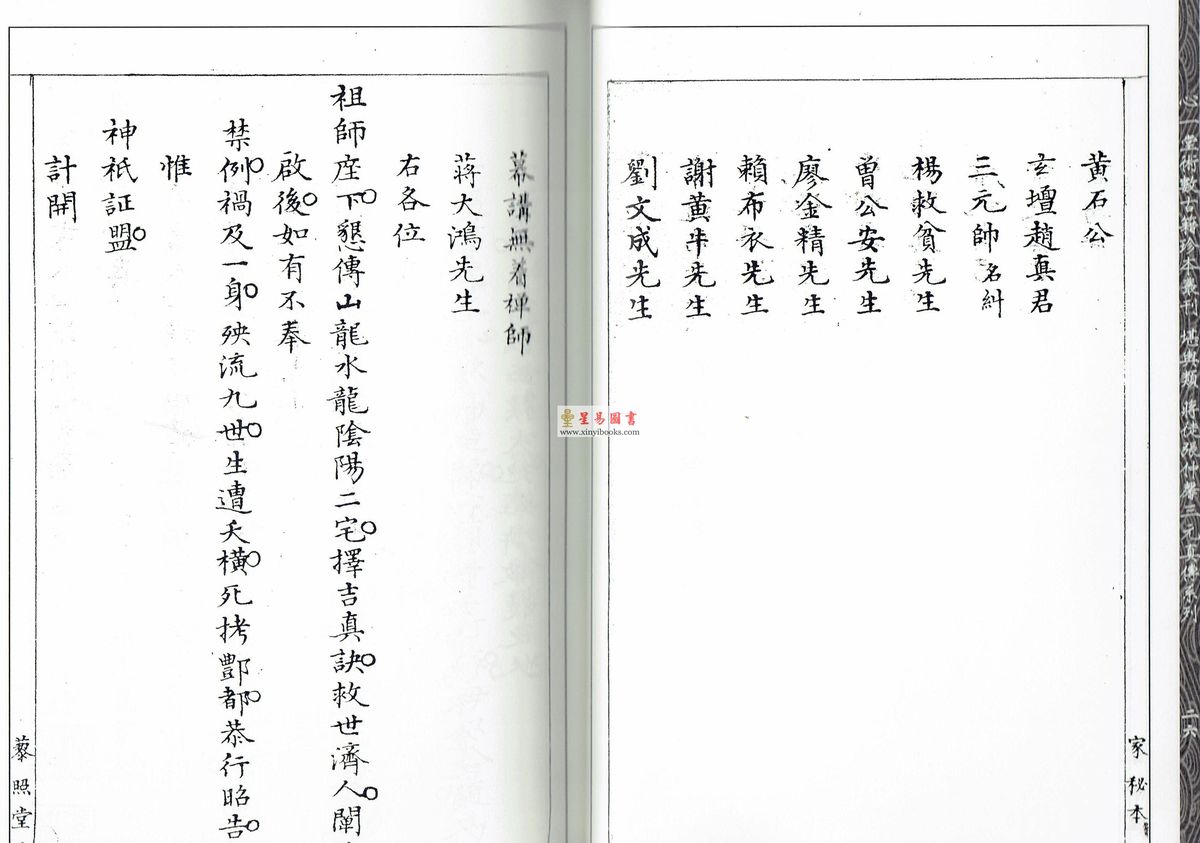 心一堂術數古籍珍本叢刊 堪輿類 蔣徒張仲馨三元真傳系列 二六
家秘本
黃石公
玄壇趙真君
三元帥名糾
楊救貧先生
曾公安先生
廖金精先生
賴布衣先生
謝黃牛先生
劉文成先生
幕講無着禅師
蔣大鴻先生
右各位
祖師座下懇傳山龍水龍陰陽二宅擇吉真訣救世濟人闡
啟後如有不奉
禁例禍及一身殃流九世生遭夭橫死拷酆都恭行昭告
惟
神祇証盟
計開
藜照堂
星易圖書
www.xinyibooks.com